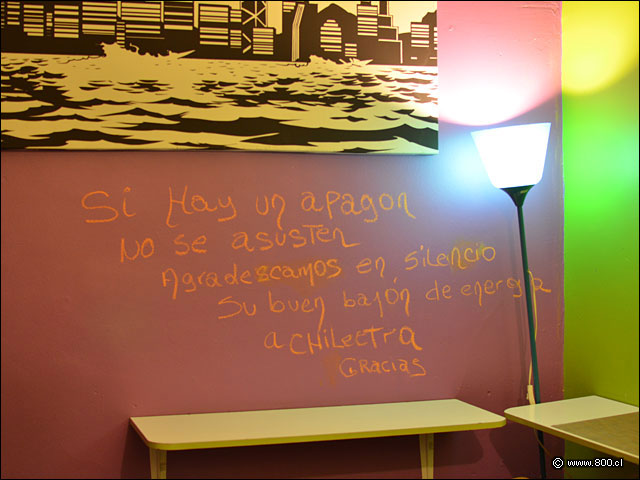 Si Hay un apagon
No se asusten
Agradescamos en silencio
Su buen bajón de energia
a CHiLectra
Gracias
© www.800.cl